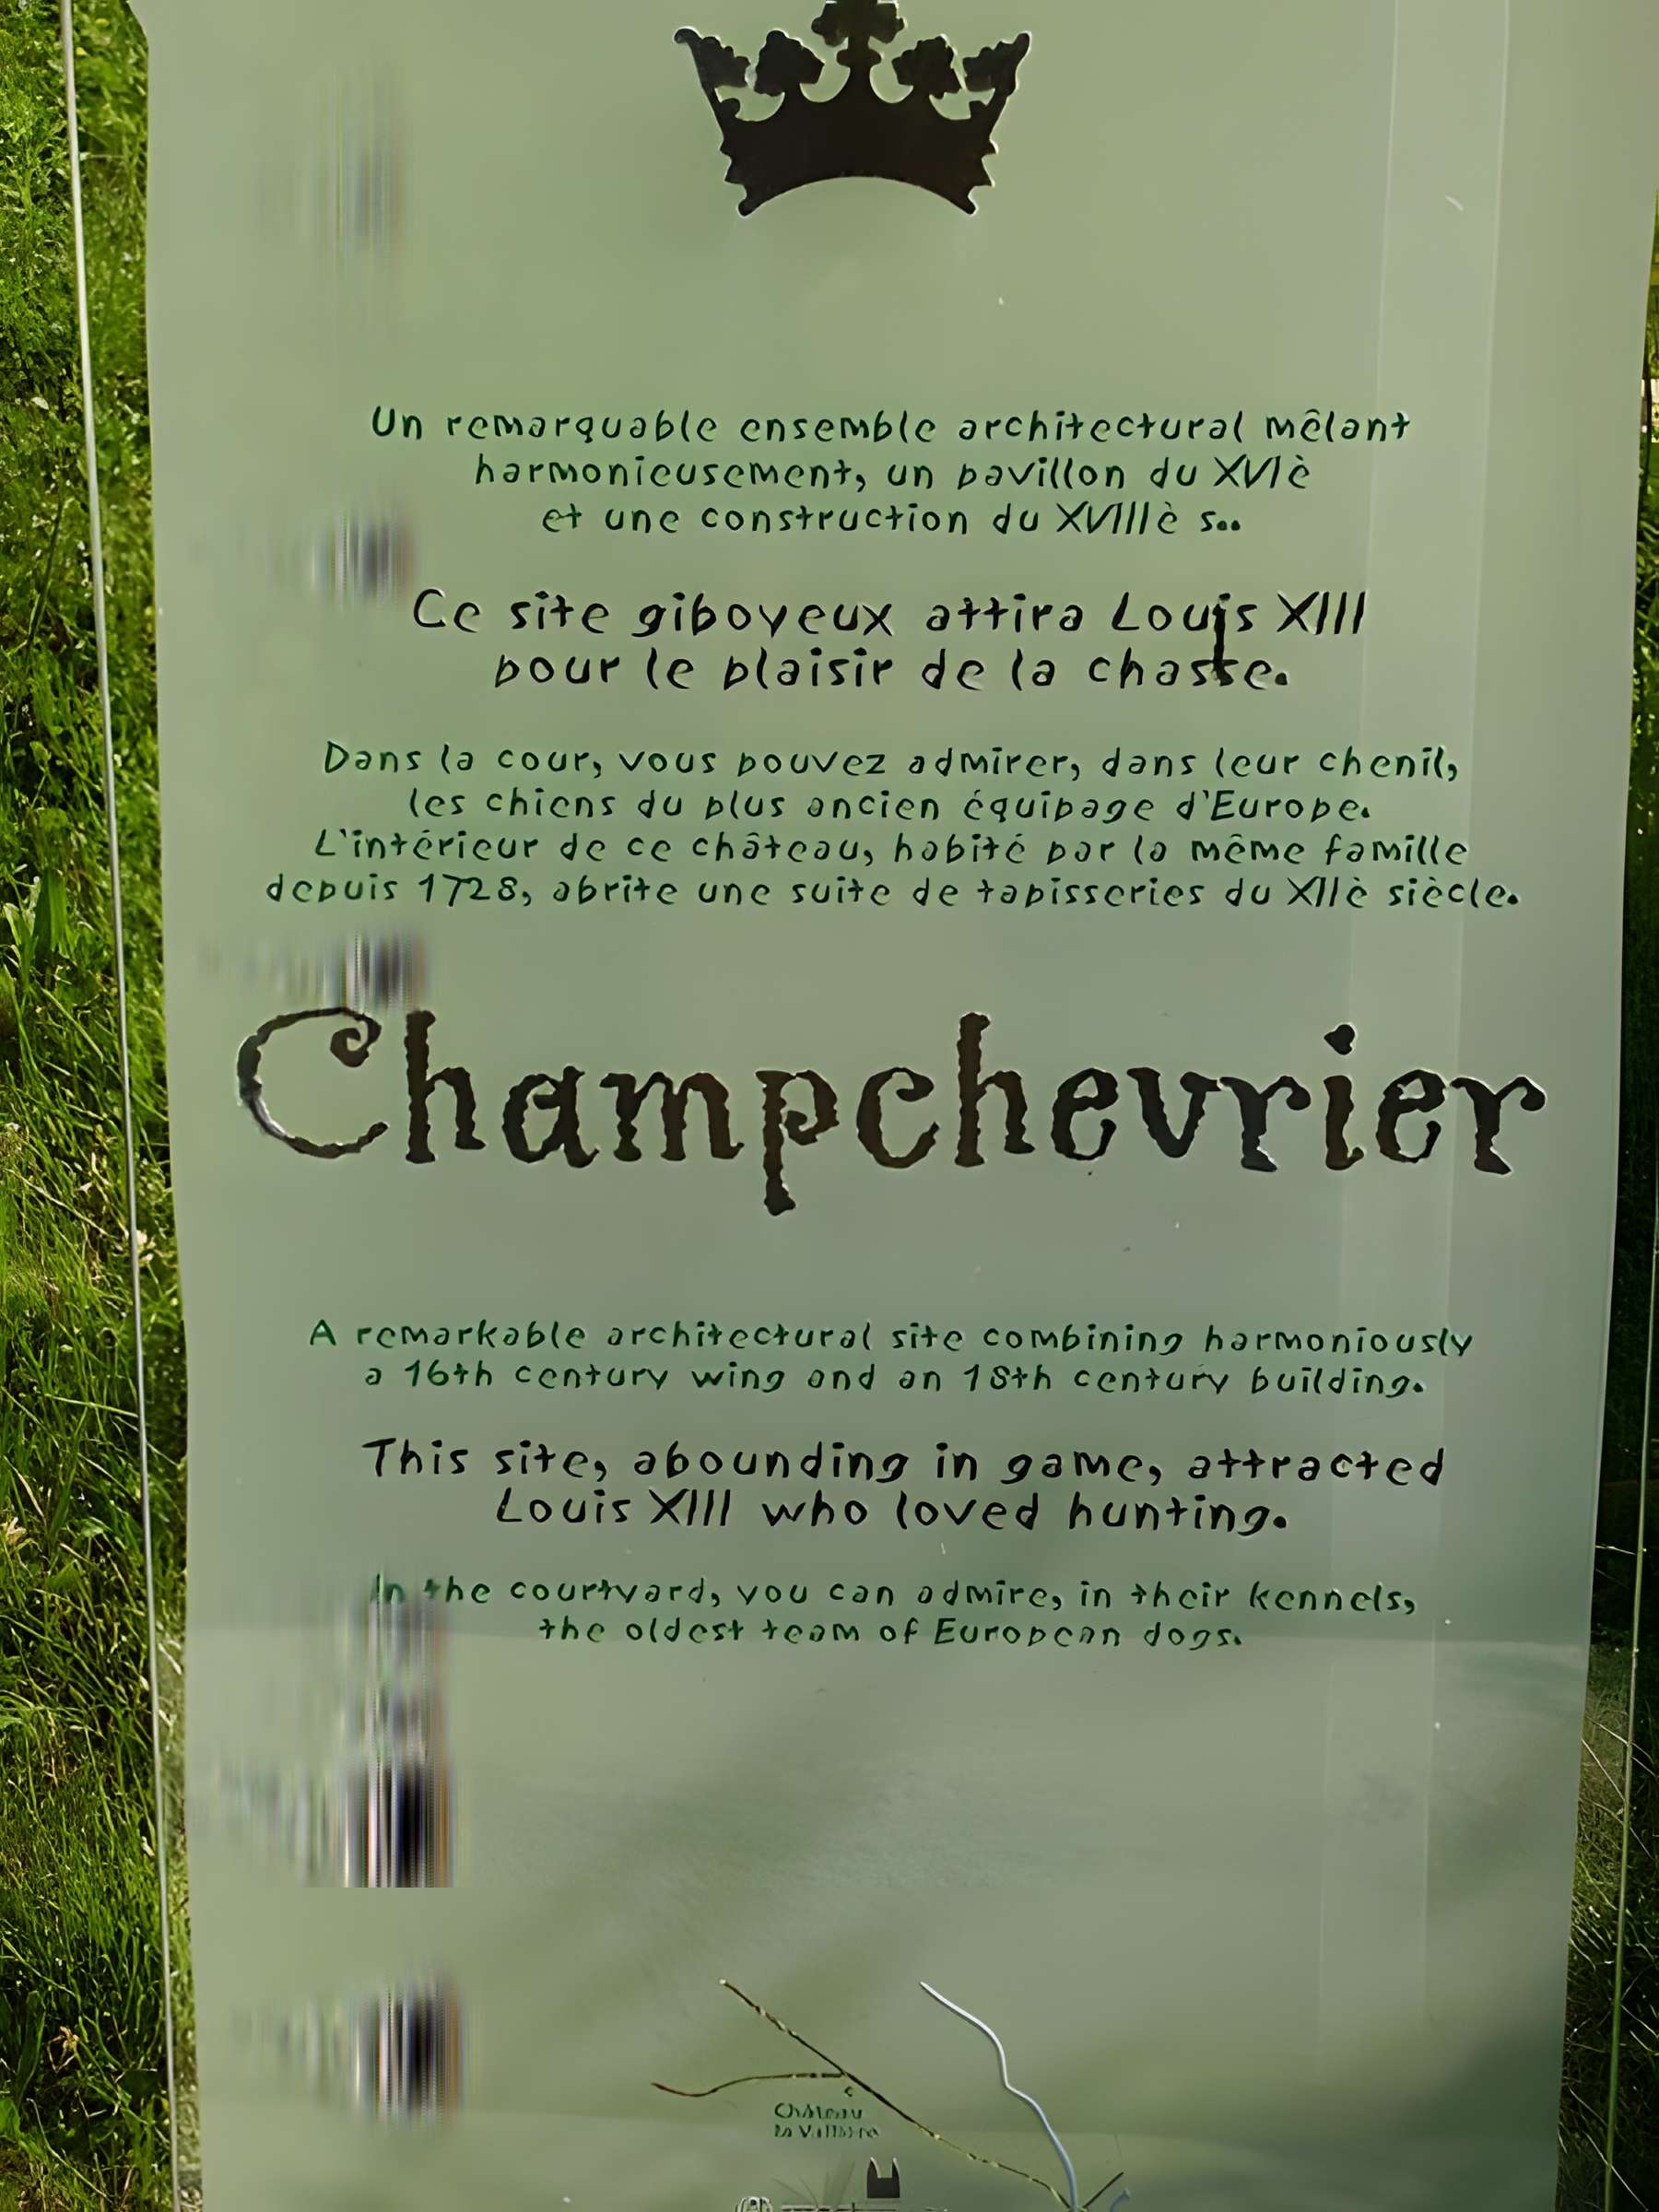 Un remarquable ensemble architectural mêlant
harmonieusement, un pavillon du XVIè
et une construction du XVIIIè s..
Ce site giboyeux attira Louis XIII
pour le plaisir de la chasse.
Dans la cour, vous pouvez admirer, dans leur chenil,
les chiens du plus ancien équipage d'Europe.
L'intérieur de ce château, habité par la même famille
depuis 1728, abrite une suite de tapisseries du XIIè siècle.
Champchevrier
A remarkable architectural site combining harmoniously
a 16th century wing and an 18th century building.
This site, abounding in game, attracted
Louis XIII who loved hunting.
In the courtyard, you can admire, in their kennels,
the oldest team of European dogs.
Château